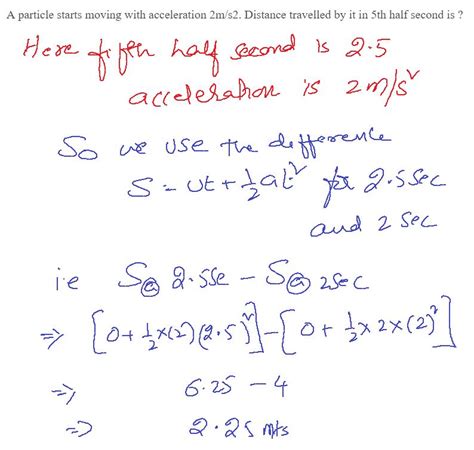 A particle starts moving with acceleration 2m/s2. Distance travelled by it in 5th half second is ?
Here fifth half second is 2.5
acceleration is 2m/s²
So we use the difference
S = ut + ½at² for 2.5 sec
and 2 sec
i.e S@ 2.5Se - S@ 2sec
⇒ [0+½×(2)(2.5)²]-[0+½×2×(2)²]
⇒ 6.25 - 4
⇒ 2.25 mts